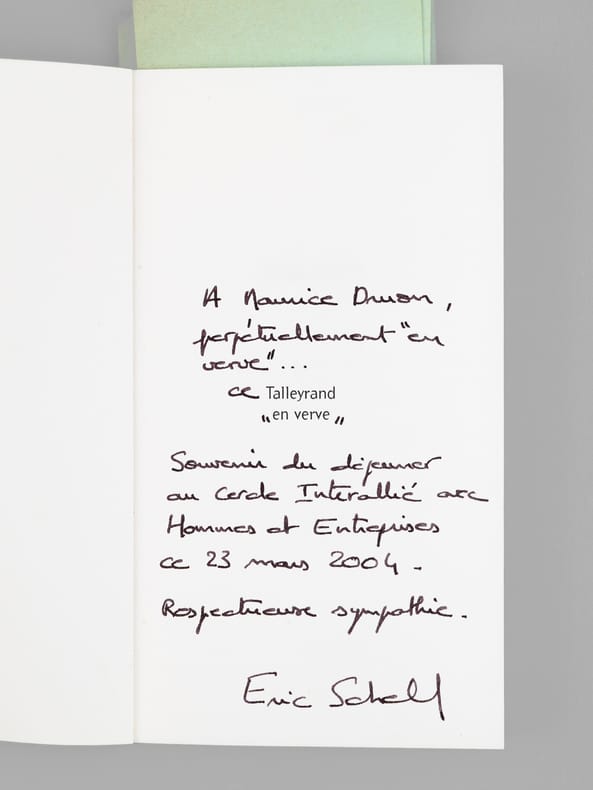 A Maurice Druon,
perpétuellement "en
verve"...
ce Talleyrand
"en verve"
Souvenir du déjeuner
au Cercle Interallié avec
Hommes et Entreprises
ce 23 mars 2004.
Respectueuse sympathie.
Eric Schell